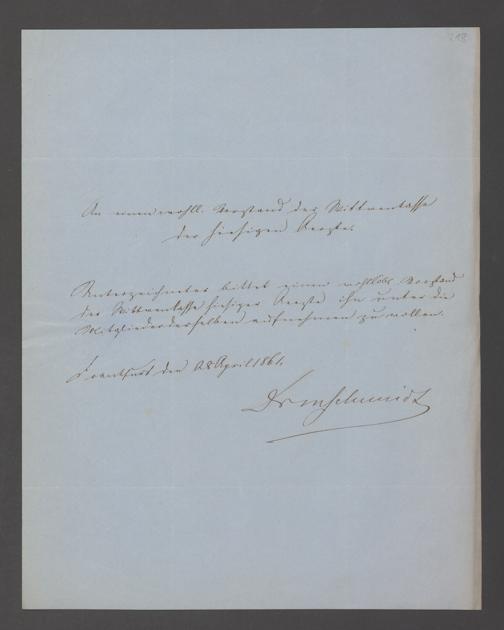 218
An einen wohll. Vorstand der Wittwenkasse
der hiesigen Aerzte.
Unterzeichneter bittet einen wohllöbl. Vorstand
der Wittwenkasse hiesiger Aerzte ihn unter die
Mitglieder derselben aufnehmen zu wollen.
Frankfurt den 28 April 1861.
Dr Schmidt